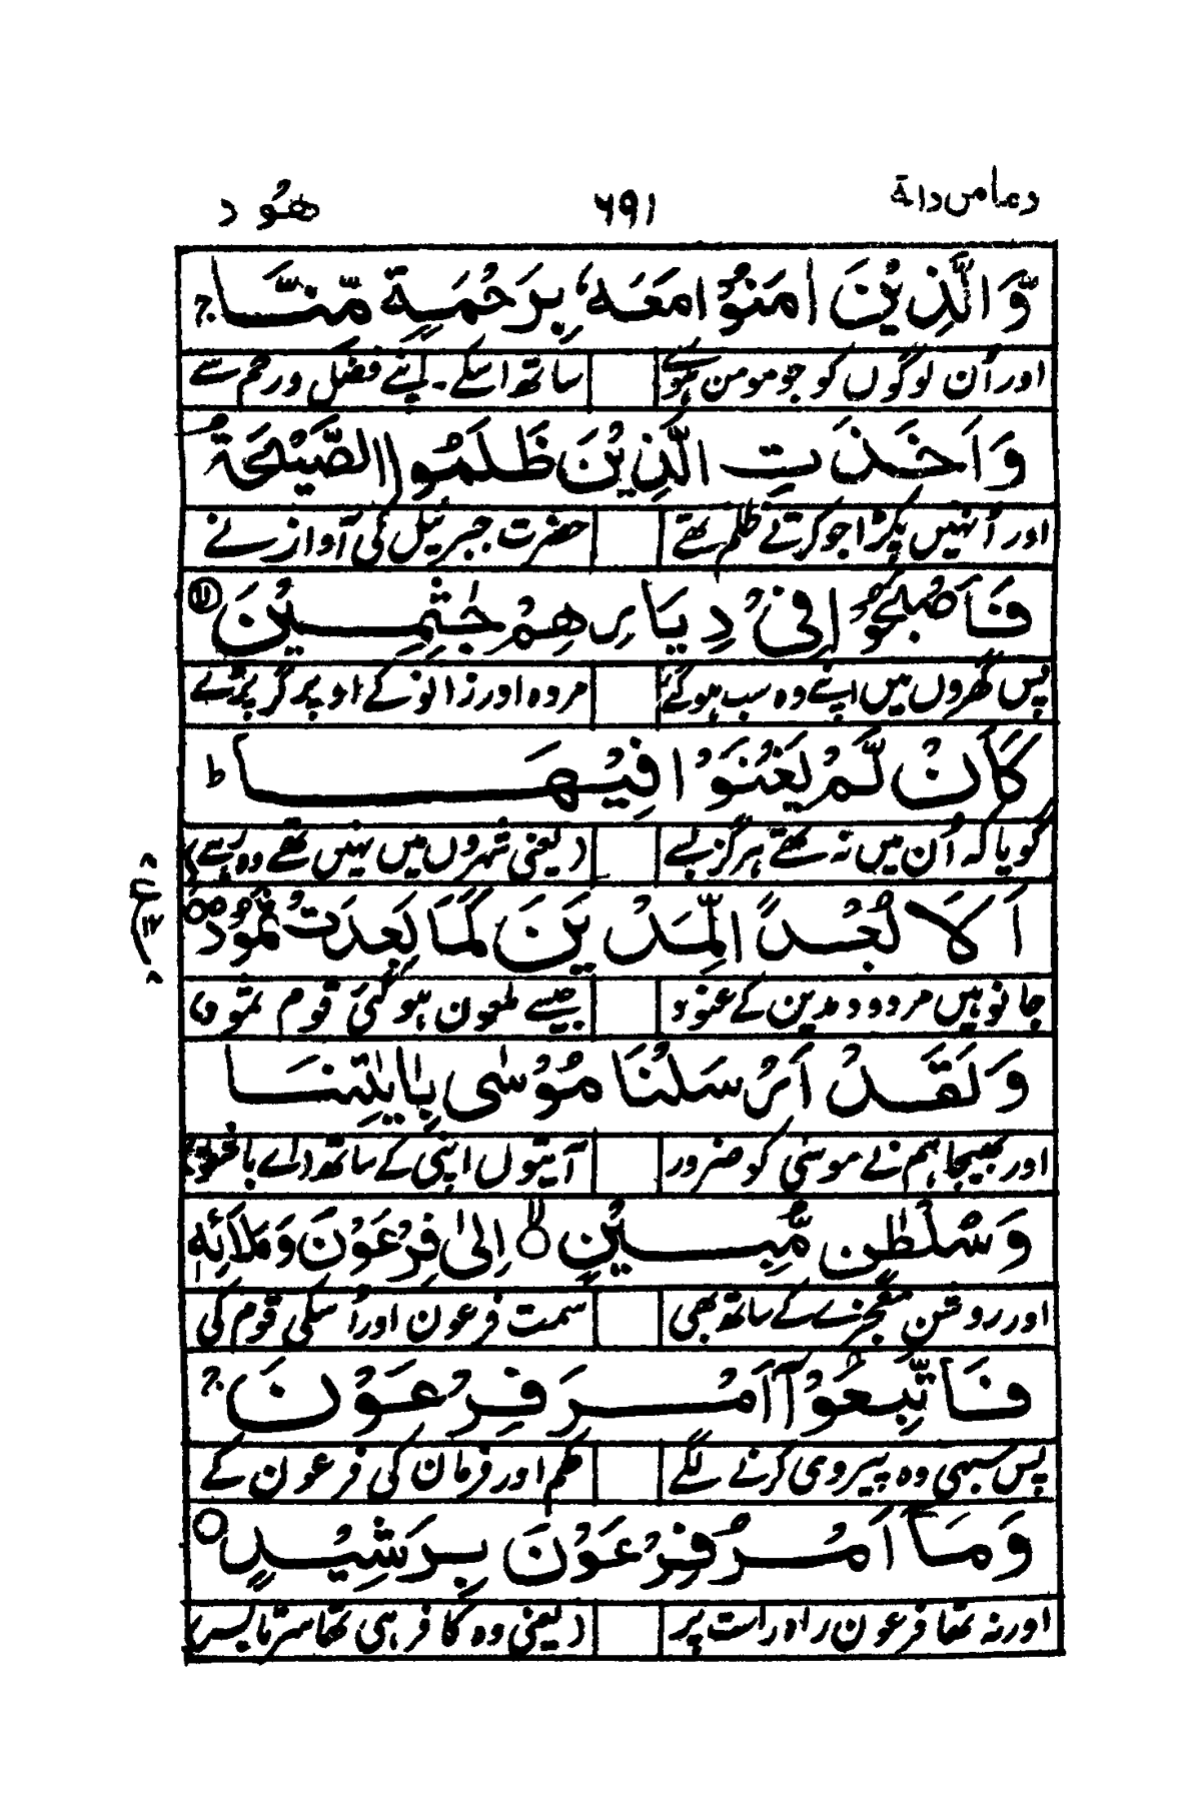 ومامن دآبة ٦٩١ هُود
وَّالَّذِيْنَ اٰمَنُوْا مَعَهٗ بِرَحْمَةٍ مِّنَّا ج
اور اُن لوگوں کو جو مومن ہوئے ساتھ اسکے ۔ اپنے فضل و رحم سے
وَاَخَذَتِ الَّذِيْنَ ظَلَمُوا الصَّيْحَةُ
اور اُنہیں پکڑا جو کرتے ظلم تھے حضرت جبرئیل کی آواز نے
فَاَصْبَحُوْا فِيْ دِيَارِهِمْ جٰثِمِيْنَ
پس گھروں میں اپنے وہ سب ہو گئے مردہ اور زانو کے اوپر گر پڑے
كَاَنْ لَّمْ يَغْنَوْا فِيْهَا ط
گویا کہ اُن میں نہ تھے ہرگز بسے (یعنی شہروں میں نہیں تھے وہ رہے)
اَلَا بُعْدًا لِّمَدْيَنَ كَمَا بَعِدَتْ ثَمُوْدُ
جانو ہیں مردود مدین کے جیسے ملعون ہو گئی قوم ثمود
وَلَقَدْ اَرْسَلْنَا مُوْسٰى بِاٰيٰتِنَا
اور بھیجا ہم نے موسٰی کو ضرور آیتوں اپنی کے ساتھ (اے
وَسُلْطٰنٍ مُّبِيْنٍ لا اِلٰى فِرْعَوْنَ وَمَلَا۟ئِهٖ
اور روشن معجزے کے ساتھ بھی سمت فرعون اور اُسکی قوم کی
فَاتَّبَعُوْٓا اَمْرَ فِرْعَوْنَ ج
پس سبھی وہ پیروی کرنے لگے حکم اور فرمان کی فرعون کے
وَمَآ اَمْرُ فِرْعَوْنَ بِرَشِيْدٍ
اور نہ تھا فرعون راہ راست پر (یعنی وہ کافر ہی تھا سرتابسر)